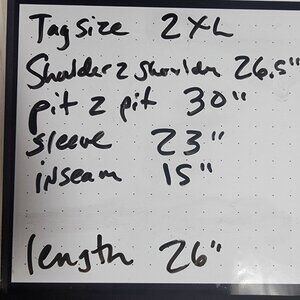 Tag size 2XL
Shoulder 2 shoulder 26.5"
pit 2 pit 30"
sleeve 23"
inseam 15"
length 26"